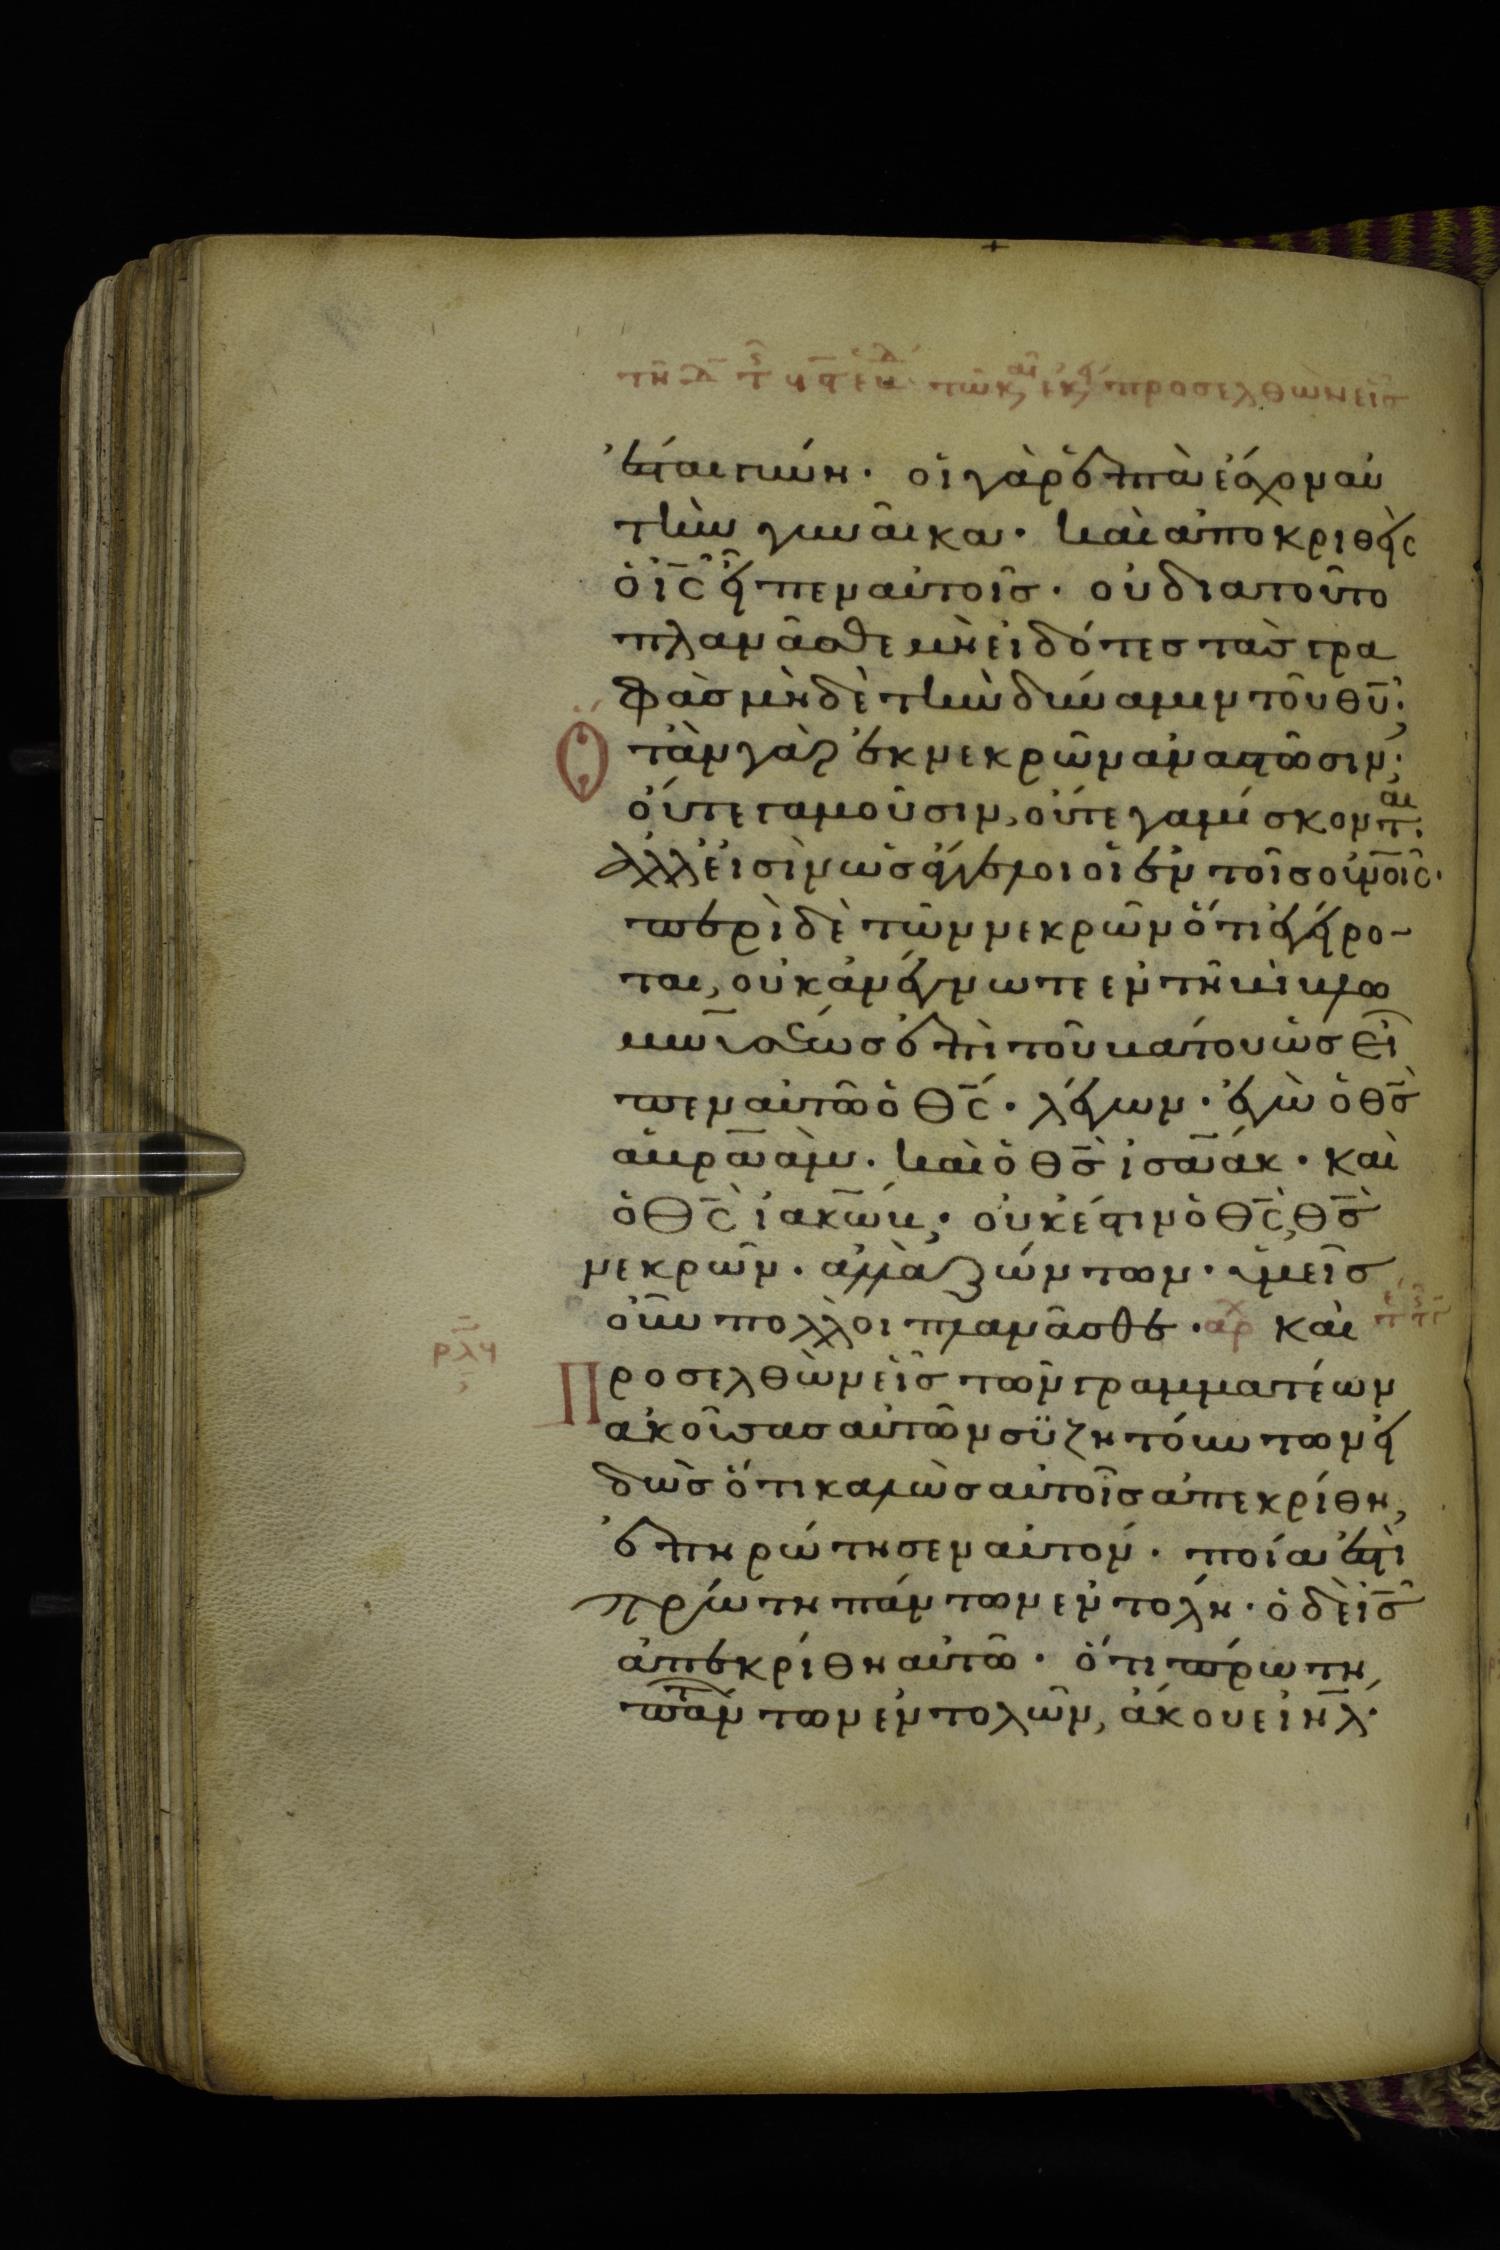 ἔσται γυνή· οἱ γὰρ ἑπτὰ ἔσχον αὐ
τὴν γυναῖκα· καὶ ἀποκριθεὶς
ὁ ι̅ς̅ εἶπεν αὐτοῖς· οὐ διατοῦτο
πλανᾶσθε μὴ εἰδότες τὰς γρα
φὰς μὴ δὲ τὴν δύναμιν τοῦ θ̅υ̅;
Ὅταν γὰρ ἐκ νεκρῶν ἀναστῶσιν·
οὔτε γαμοῦσιν, οὔτε γαμίσκονται·
ἀλλ εἰσὶν ὡς ἄγγελοι οἱ ἐν τοῖς ο̅υ̅ν̅οῖς·
περὶ δὲ τῶν νεκρῶν ὅτι ἐγείρο-
ται, οὐκ ἀνέγνωτε ἐν τῆ βίβλω
μωϋσέως ἐπὶ τοῦ βάτου ὡς εἶ
πεν αὐτῶ ὁ θ̅ς̅· λέγων· ἐγὼ ὁ θ̅ς̅
ἀβραὰμ· καὶ ὁ θ̅ς̅ ἰσαάκ· καὶ
ὁ θ̅ς̅ ἰακώβ· οὐκ ἔστιν ὁ θ̅ς̅, θ̅ς̅
νεκρῶν· ἀλλὰ ζώντων· ὑμεῖς
οὖν πολλοὶ πλανᾶσθε· αρχ καὶ
ρλη
Προσελθὼν εἷς τῶν γραμματέων
ἀκούσας αὐτῶν συζητούντων εἰ
δὼς ὅτι καλῶς αὐτοῖς ἀπεκρίθη,
ἐπηρώτησεν αὐτόν· ποία ἐστὶ
πρώτη πάντων ἐντολή· ὁ δὲ ι̅ς̅
ἀπεκρίθη αὐτῶ· ὅτι πρώτη
πάντων ἐντολῶν, ἄκουε ι̅η̅λ̅·